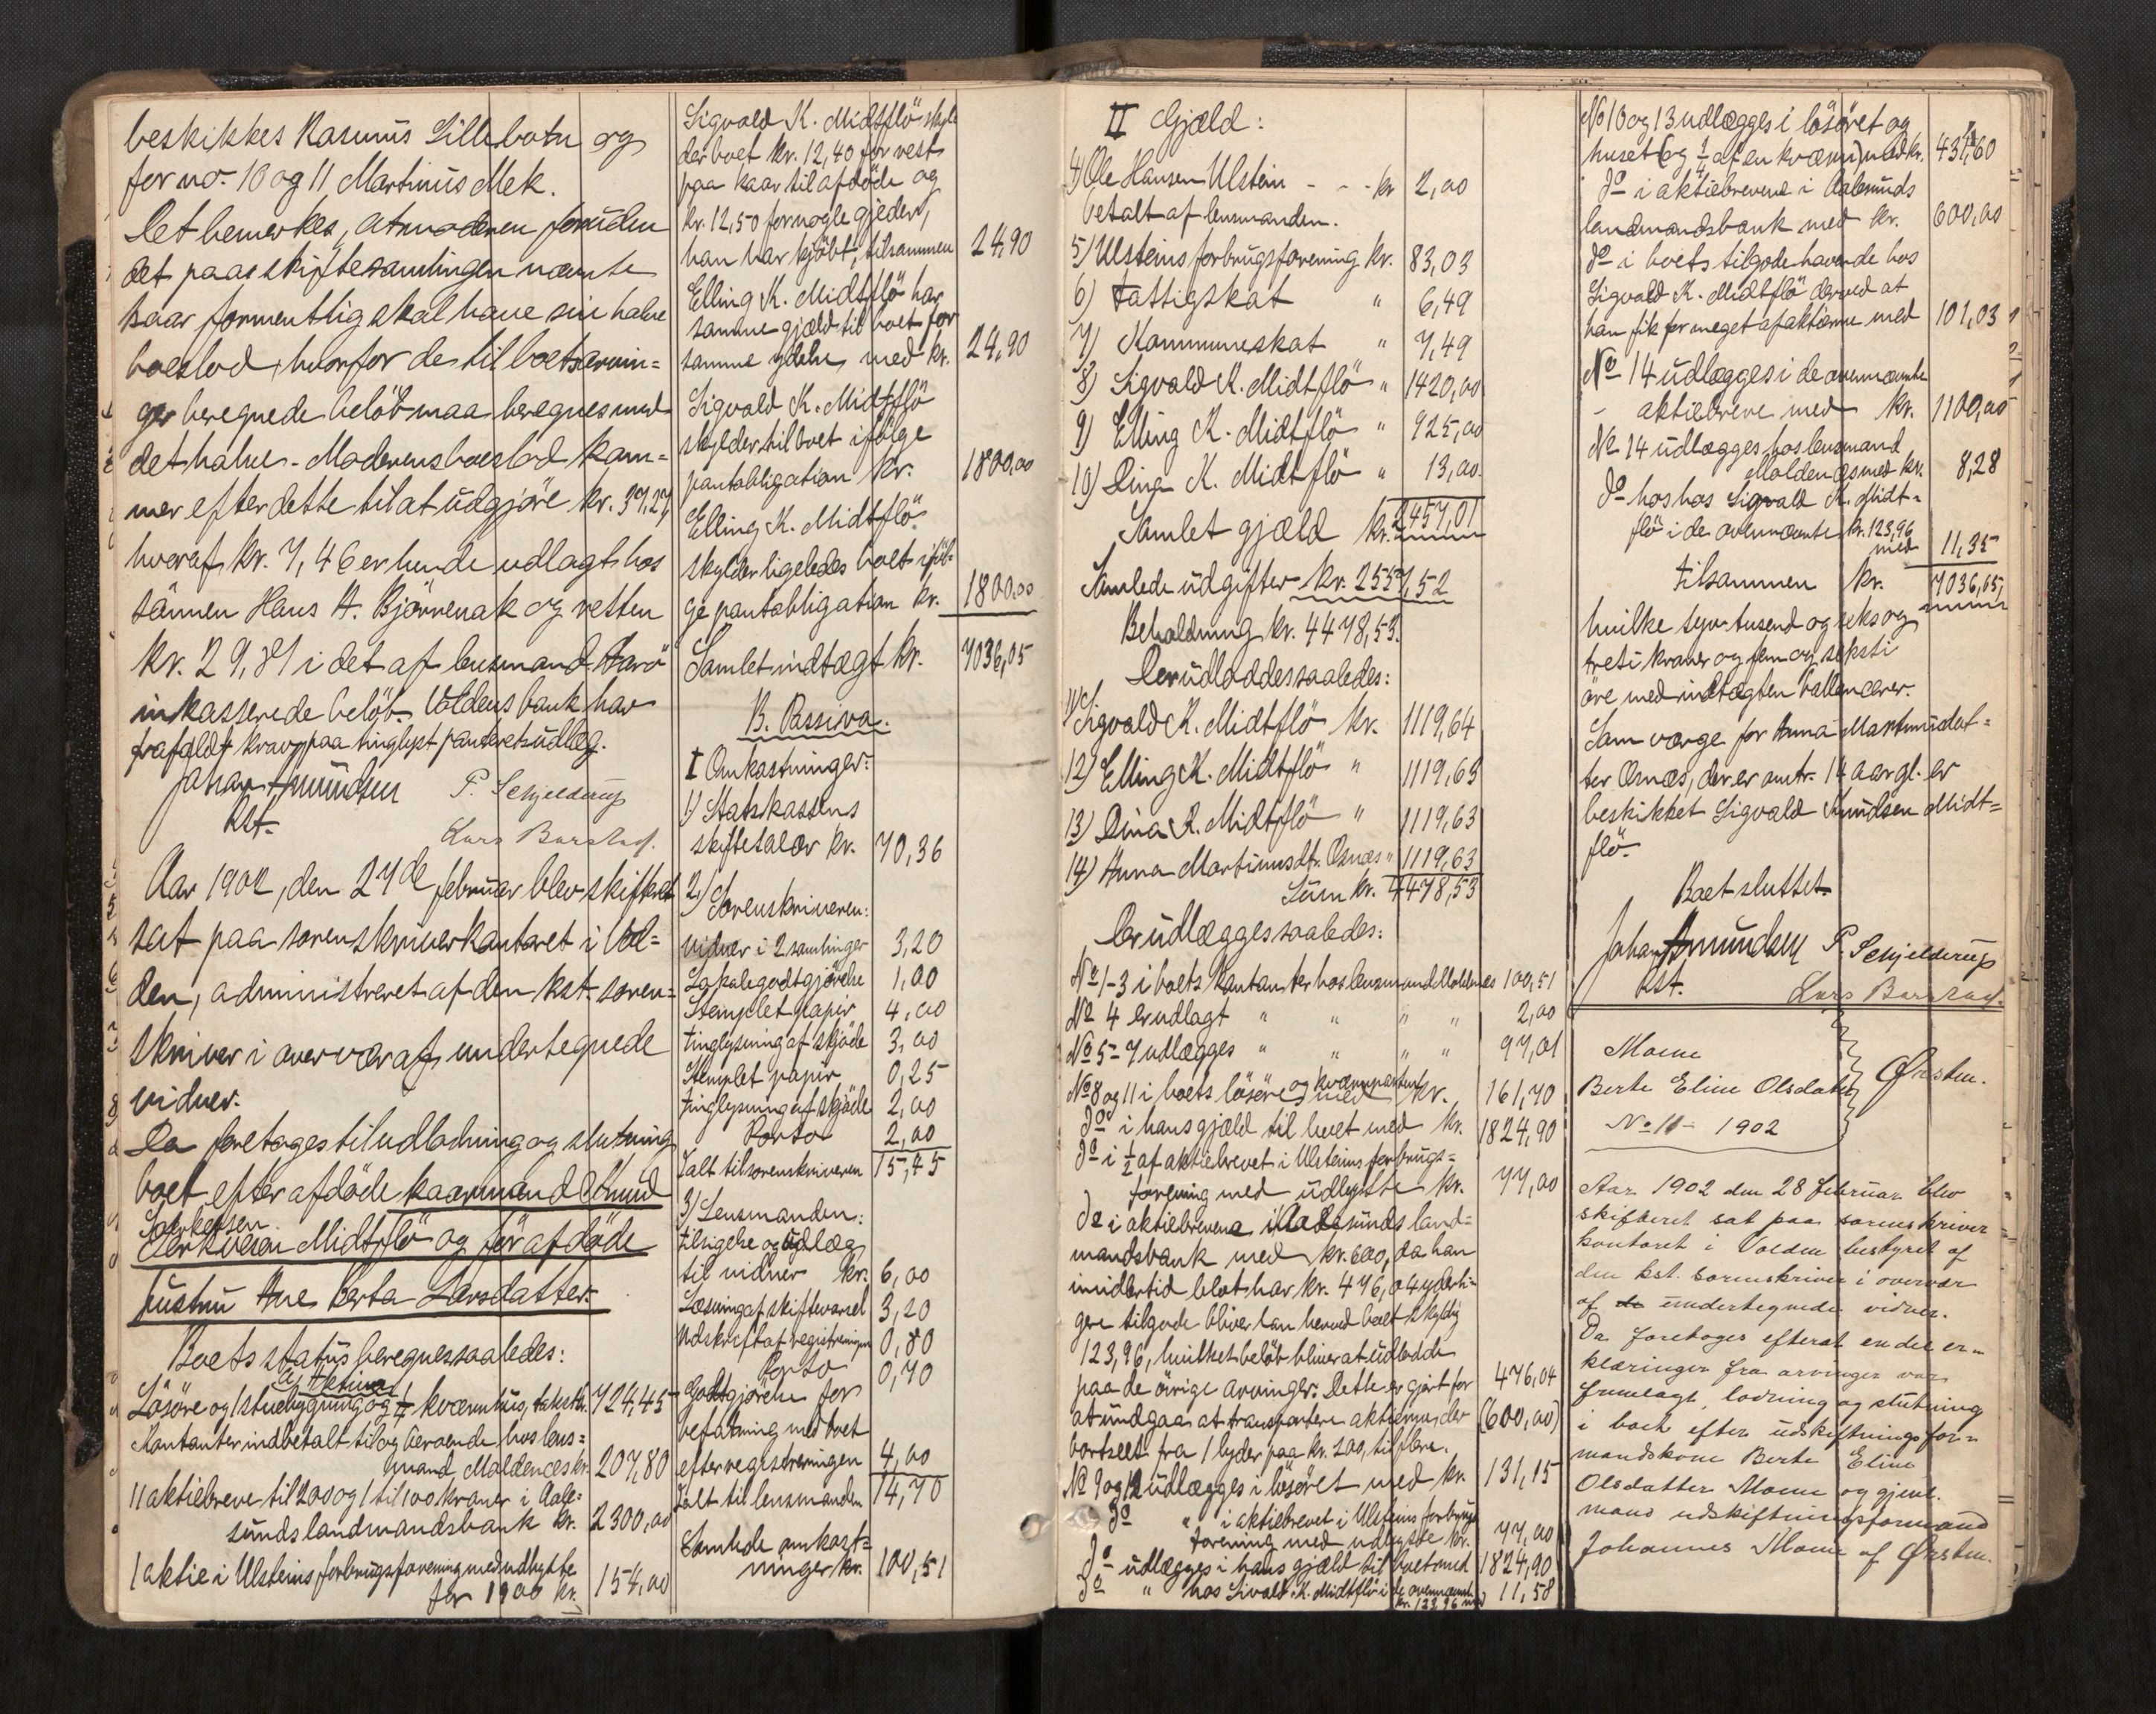 beskikkes Rasmus Lillebotn og
for no. 10 og 11 Martinus Mek.
Det bemerkes, at moderen foruden
det paa skiftesamlingen nævnte
kaar formentlig skal have sin halve
boeslod, hvorfor de til boets arvin=
ger beregnede beløb maa beregnes med
det halve. Moderens boeslod kom=
mer efter dette til at udgjøre kr. 37,27,
hveraf kr. 7,46 er hende udlagt hos
sønnen Hans A. Bjørnenak og resten
kr. 29,81 i det af lensmand Aarø
inkasserede beløb. Voldens bank har
frafaldt krav paa tinglyst panteretsudlæg.
Johan Amundsen P. Schjelderup
kst. Lars Barstad.
Aar 1902, den 27de februar blev skifteret
sat paa sorenskriverkontoret i Vol=
den, administreret af den kst. soren=
skriver i overvær af undertegnede
vidner.
Da foretages til udlodning og slutning
boet efter afdøde kaarmand Knud
Sjurkersen
Midtflø og før afdøde
hustru Ane Berta Larsdatter.
Boets status beregnes saaledes:
A, Aktiva
Løsøre og 1 stuebygning og 1/4 kværnhus, takst kr. 724,45
Kontanter indbetalt til og beroende hos lens=
mand Moldenæs kr. 207,80
11 aktiebreve til 200 og 1 til 100 kroner i Aale=
sunds landmandsbank kr. 2300,00
1 aktie i Ulsteins forbrugsforening med udbytte
for 1900 kr. 154,00
Sigvald K. Midtflø skyl=
der boet kr. 12,40 for rest
paa kaar til afdøde og
kr. 12,50 for nogle gjeder,
han har kjøbt, tilsammen 24,90
Elling K. Midtflø har
samme gjæld til boet for
samme ydelse med kr. 24,90
Sigvald K. Midtflø
skylder til boet ifølge
pantobligation kr. 1800,00
Elling K. Midtflø
skylder ligeledes boet iføl=
ge pantobligation kr. 1800,00
Samlet indtægt kr. 7036,05
B. Passiva.
I Omkostninger:
1) Statskassens
skiftetalær kr. 70,36
2) Sorenskriveren:
vidner i 2 samlinger 3,20
Lokalegodtgjørelse 1,00
Stemplet papir 4,00
tinglysning af skjøde 3,00
Stemplet papir 0,25
tinglysning af skjøde 2,00
Porto 2,00
Ialt til sorenskriveren 15,45
3) Lensmanden:
tilsigelse og udlæg
til vidner kr. 6,00
Læsning af skiftevarsel 3,20
Udskrift af registreringen 0,80
Porto 0,70
Godtgjørelse for
befatning med boet
efter registreringen 4,00
Ialt til lensmanden 14,70
Samlede omkost=
ninger kr. 100,51
II Gjæld:
4) Ole Hansen Ulstein - - - kr 2,00
betalt af lensmanden.
5) Ulsteins forbrugsforening kr. 83,03
6) Fattigskat " 6,49
7) Kommuneskat " 7,49
8) Sigvald K. Midtflø " 1420,00
9) Elling K. Midtflø " 925,00
10) Dina K. Midtflø " 13,00
Samlet gjæld kr. 2457,01
Samlede udgifter kr. 2557,52
Beholdning kr. 4478,53.
Der udloddes saaledes:
11) Sigvald K. Midtflø kr. 1119,64
12) Elling K. Midtflø " 1119,63
13) Dina K. Midtflø " 1119,63
14) Anna Martinusdtr. Osnæs " 1119,63
Sum kr. 4478,53
Der udlægges saaledes:
No 1-3 i boets kontanter hos lensmand Moldenæs 100,51
No 4 er udlagt " " " " 2,00
No 5-7 udlægges " " " " 97,01
No 8 og 11 i boets løsøre og kværnpart med kr. 161,70
do i hans gjæld til boet med kr. 1824,90
do i 1/2 af aktiebrevet i Ulsteins forbrugs=
forening med udbytte kr. 77,00
do i aktiebrevene i Aalesunds land=
mandsbank med kr. 600, da han
imidlertid blot har kr. 476,04 yderli=
gere tilgode bliver han herved boet skyldig
123,96, hvilket beløb bliver at udlodde
paa de øvrige arvinger. Dette er gjort for 476,04
at undgaa at transportere aktierne, der (600,00)
bortseet fra 1 lyder paa kr. 200, til flere.
No 9 og 12 udlægges i løsøret med kr. 131,15
do " i aktiebrevet i Ulsteins forbrugs
forening med udbytte kr. 77,00
do udlægges i hans gjæld til boet med 1824,90
do " hos Sivald K. Midtflø i de ovennævnte
kr. 123,96 med 11,58
No 10 og 13 udlægges i løsøret og
huset (og 1/4 af en kværn) med kr. 431,60
do i aktiebrevene i Aalesunds
landmandsbank med kr. 600,00
do i boets tilgodehavende hos
Sigvald K. Midtflø derved at
han fik for meget af aktierne med 101,03
No 14 udlægges i de ovennævnte
- aktiebreve med kr. 1100,00
No 14 udlægges hos lensmand
Moldenæs med kr. 8,28
do hos hos Sigvald K. Midt=
flø i de ovennævnte kr. 123,96
med 11,35
tilsammen kr. 7036,05,
hvilke syv tusend og seks og
treti kroner og fem og seksti
øre med indtægten ballancerer.
Som værge for Anna Martinusdat=
ter Osnæs, der er omtr. 14 aar gl. er
beskikket Sigvald Knudsen Midt=
flø.
Boet sluttet.
Johan Amundsen P. Schjelderup
kst. Lars Barstad.
Moene
Berte Eline Olsdatter Ørsten.
No 11 - 1902
Aar 1902 den 28 februar blev
skifteret sat paa sorenskriver=
kontoret i Volden bestyret af
den kst. sorenskriver i overvær
af de undertegnede vidner.
Da foretoges efterat endel er=
klæringer fra arvinger var
fremlagt, lodning og slutning
i boet efter udskiftningsfor=
mandskone Berte Eline
Olsdatter Moene og gjenl.
mand udskiftningsformand
Johannes Moene af Ørsten.